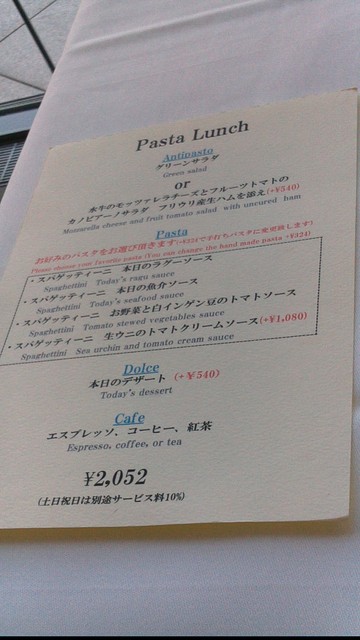 Pasta Lunch
Antipasto
グリーンサラダ
Green salad
or
水牛のモッツァレラチーズとフルーツトマトの
カノビアーノサラダ フリウリ産生ハムを添え(+¥540)
Mozzarella cheese and fruit tomato salad with uncured ham
Pasta
お好みのパスタをお選び頂きます(+¥324で手打ちパスタに変更致します)
Please choose your favorite pasta (You can change the hand made pasta +¥324)
・スパゲッティーニ 本日のラグーソース
Spaghettini Today's ragu sauce
・スパゲッティーニ 本日の魚介ソース
Spaghettini Today's seafood sauce
・スパゲッティーニ お野菜と白インゲン豆のトマトソース
Spaghettini Tomato stewed vegetables sauce
・スパゲッティーニ 生ウニのトマトクリームソース(+¥1,080)
Spaghettini Sea urchin and tomato cream sauce
Dolce
本日のデザート (+¥540)
Today's dessert
Cafe
エスプレッソ、コーヒー、紅茶
Espresso, coffee, or tea
¥2,052
(土日祝日は別途サービス料10%)